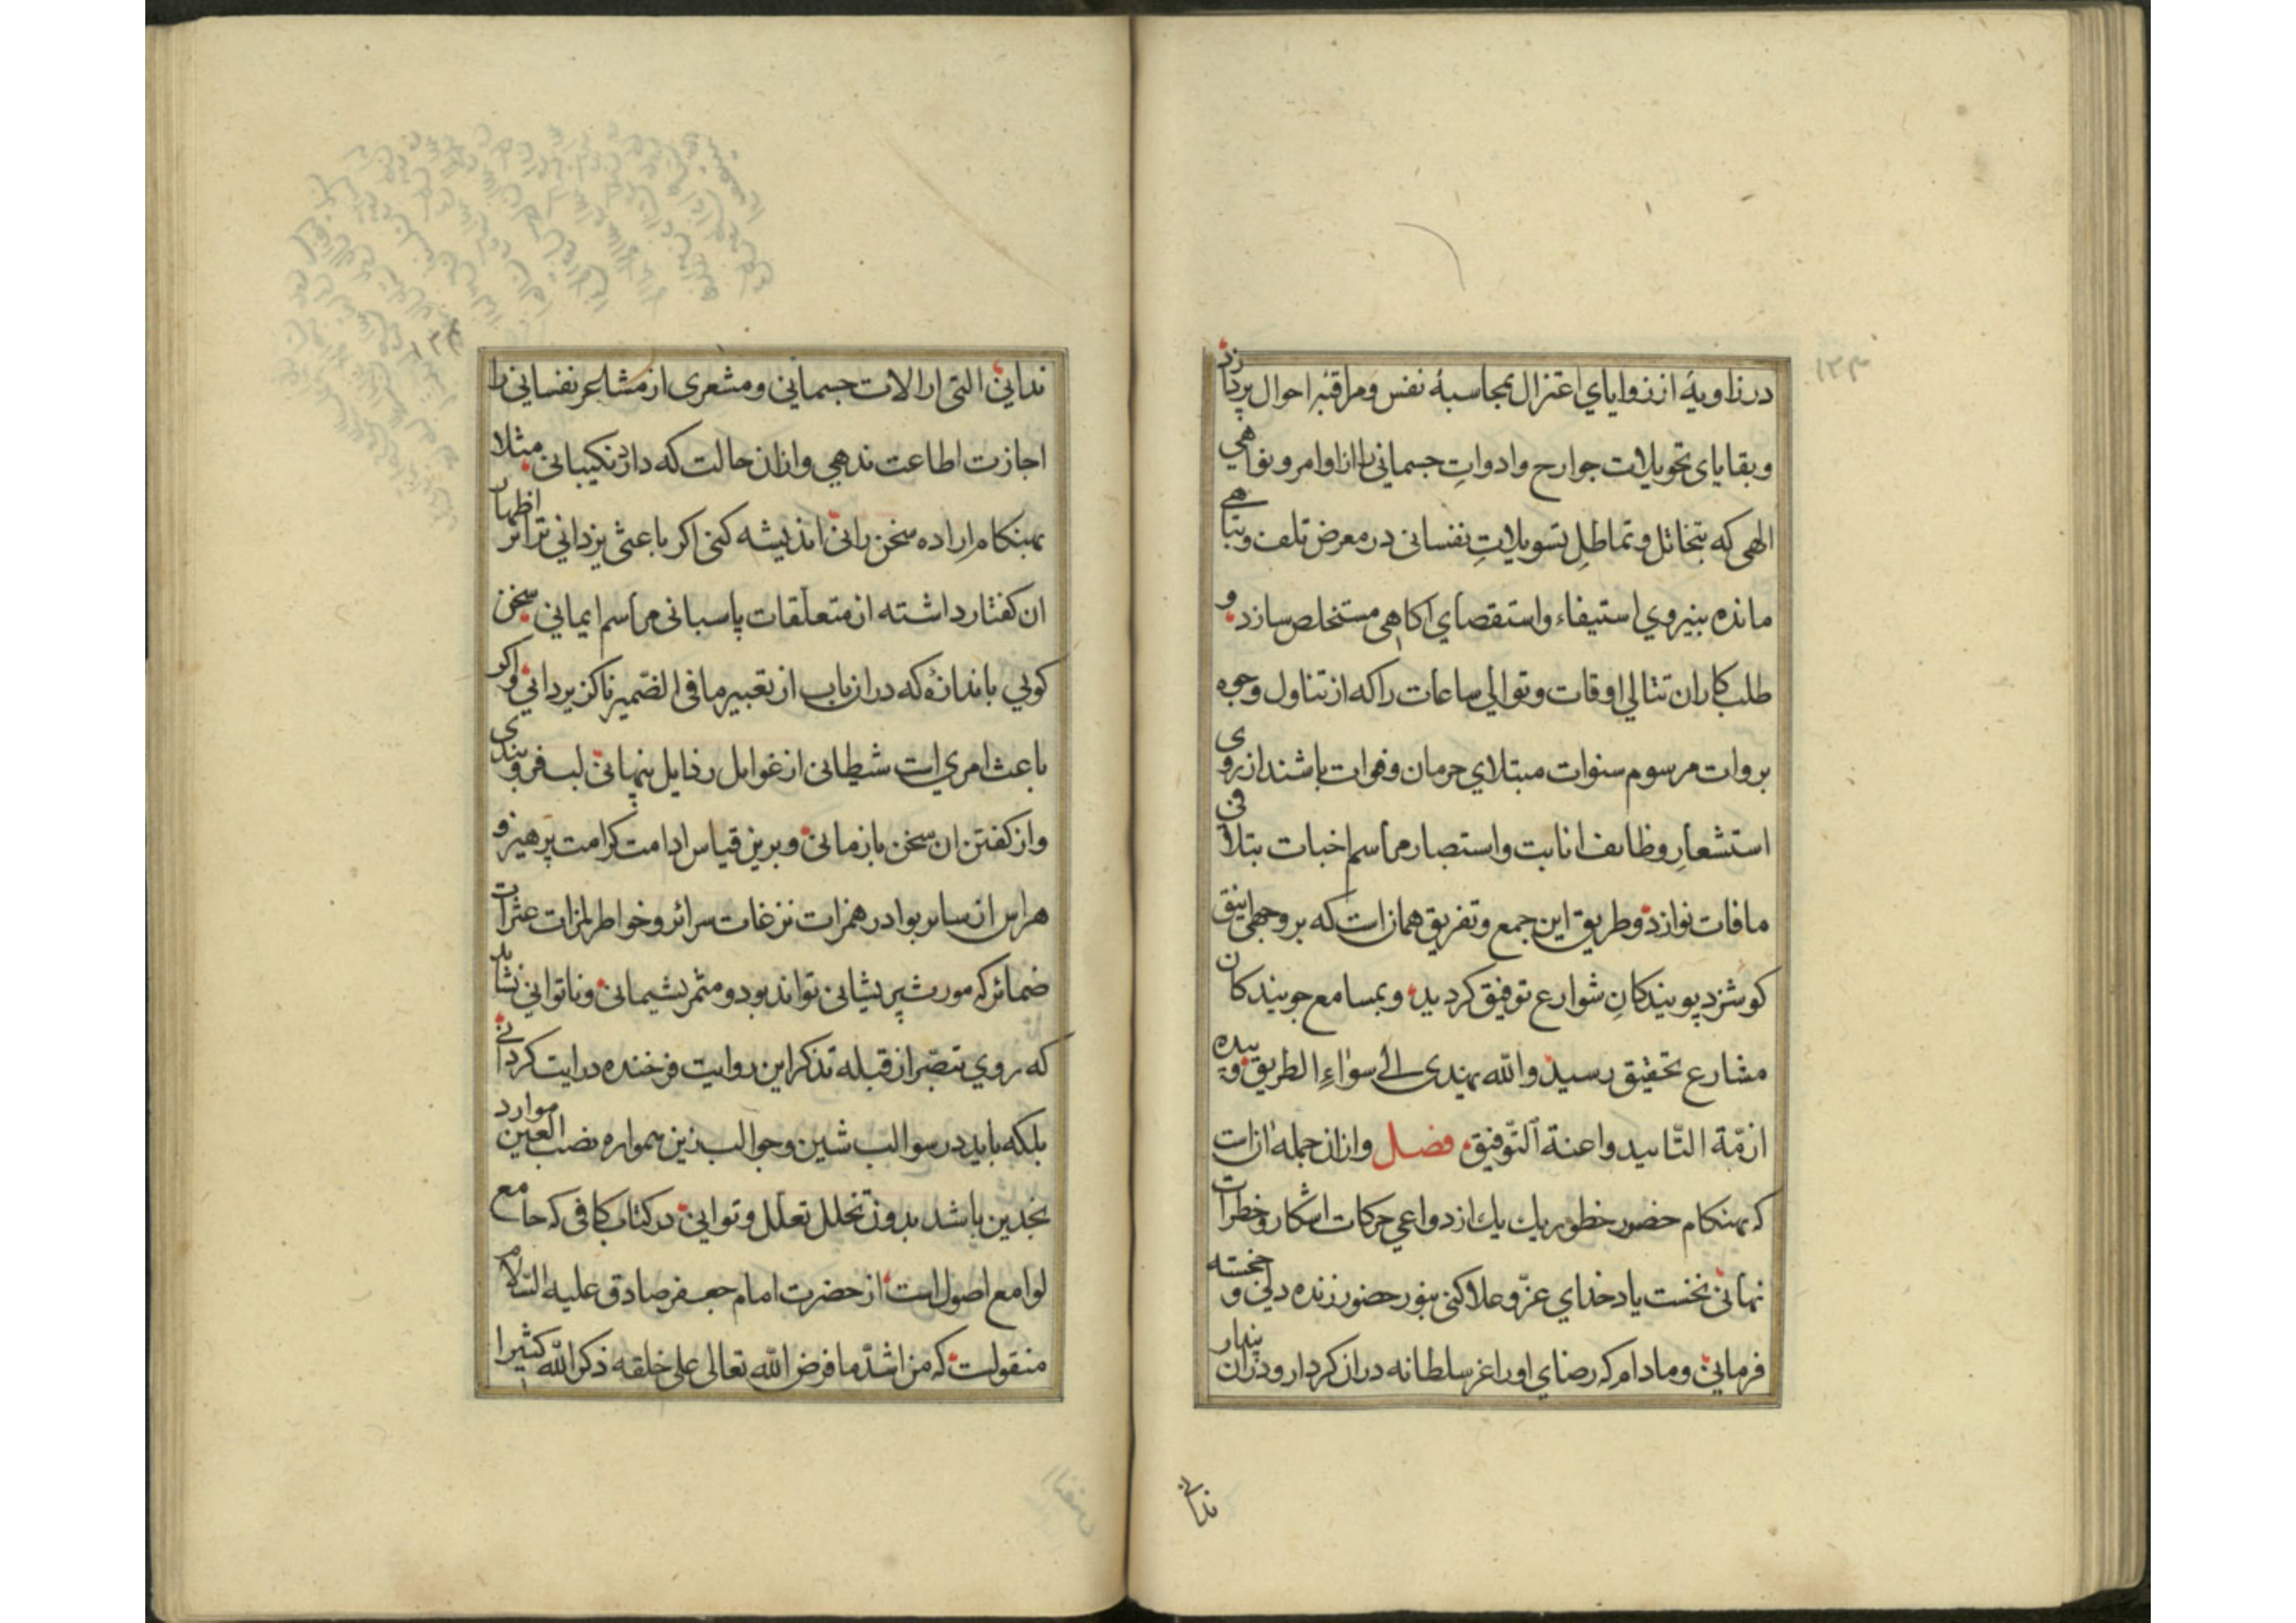 ۱۲۳
در زاویهٔ از زوایای اعتزال بمحاسبهٔ نفس و مراقبهٔ احوال پردازد
و بقایای تحویلات جوارح و ادواتِ جسمانی را از اوامر و نواهی
الهی که بتخاتل و تماطلِ تسویلاتِ نفسانی در معرض تلف و تباهی
مانده بنیروی استیفاء و استقصای اکاهی مستخلص سازد و
طلب کاران تتالی اوقات و توالی ساعات را که از تناول وجوه
بروات مرسوم سنوات مبتلای حرمان و فوات باشند از روی
استشعارِ وظائف انابت و استصار مراسم اخبات بتلافی
مافات نوازد و طریق این جمع و تفریق همانست که بر وجهی انیق
کوشزد پویندکانِ شوارع توفیق کردید و بمسامع جویندکان
مشارع تحقیق رسید والله یهدی الی سوآءِ الطریق و بیده
ازمّة التّایید و اعنة التّوفیق فصل و از ان جمله انست
که بهنکام حضور خطور یك یك از دواعی حرکات اشکار و خطرات
نهانی نخست یاد خدای عزّ و علا کنی بنور حضور زنده دلی و خجسته
فرمایی و مادام که رضای او را عز سلطانه در ان کردار و در ان پندار
ندانی
ندانی التی از الات جسمانی و مشعری از مشاعر نفسانی را
اجازت اطاعت ندهی و از ان حالت که دارد نکیبانی مثلا
بهنکام اراده سخن رانی اندیشه کنی اکر باعثی یزدانی ترا بر اظهار
ان کفتار داشته از متعلقات پاسبانی مراسم ایمانی سخن
کویی باندازهٔ که در ان باب از تعبیر ما فی الضمیر ناکزیر دانی و اکر
باعث امری است شیطانی از غوایل رذایل پنهانی لب فرو بندی
و از کفتن ان سخن باز مانی و برین قیاس ادامت کرامت پرهیز و
هراس از سایر بوادر همزات نزغات سرائر و خواطر لمزات عثرات
ضمائر که مورث پریشانی تواند بود و مثمر پشیمانی و ناتوانی نشاید
که روی تبصّر از قبله تذکر این روایت فرخنده درایت کردانی
بلکه باید در سوالب شین و جوالب زین همواره نصب العین موارد
نجدین باشد بدون تخلل تعلّل و توانی در کتاب کافی که جامع
لوامع اصول است از حضرت امام جعفر صادق علیه السّلام
منقولست که من اشدّ ما فرض الله تعالی علی خلقه ذکر الله کثیرا